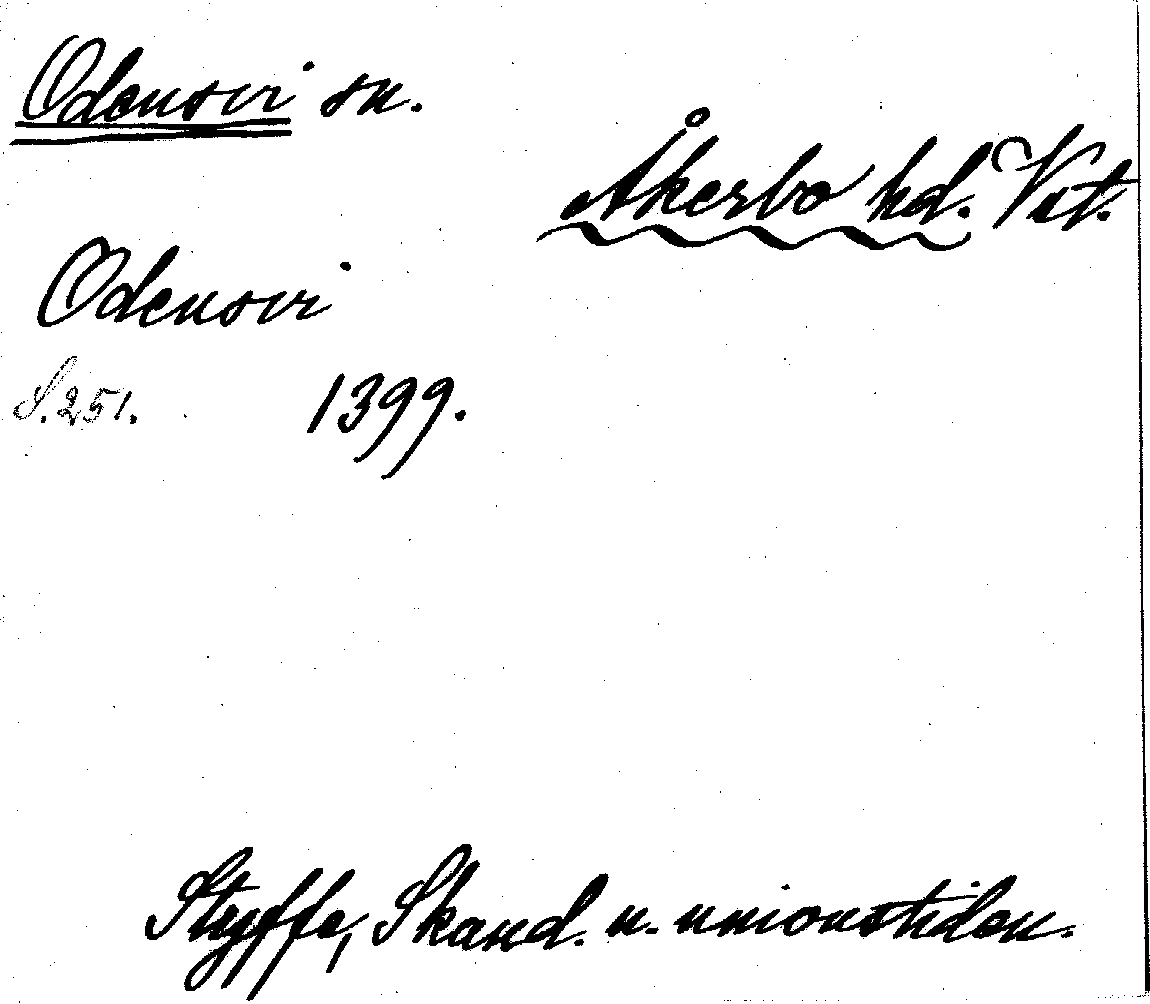 Odensvi sn.
Åkerbo hd. Vstm.
Odensvi
S. 251. 1399.
Styffe, Skand. u. unionstiden.